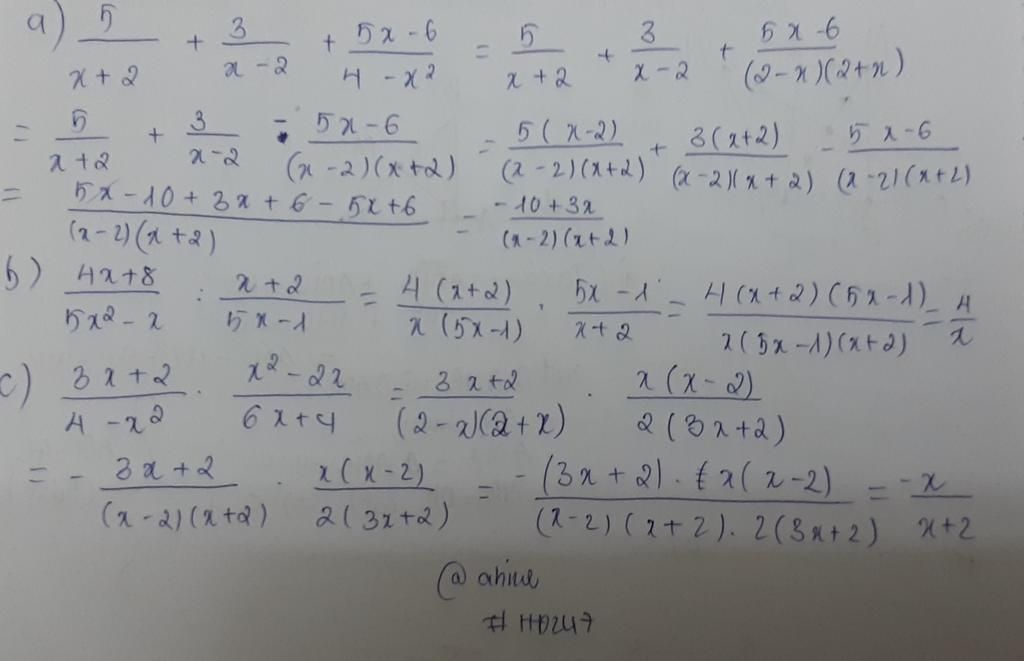 a) 5/(x+2) + 3/(x-2) + (5x-6)/(4-x²) = 5/(x+2) + 3/(x-2) + (5x-6)/((2-x)(2+x))
= 5/(x+2) + 3/(x-2) - (5x-6)/((x-2)(x+2)) = 5(x-2)/((x-2)(x+2)) + 3(x+2)/((x-2)(x+2)) - (5x-6)/((x-2)(x+2))
= (5x-10+3x+6-5x+6)/((x-2)(x+2)) = (-10+3x)/((x-2)(x+2))
b) (4x+8)/(5x²-x) : (x+2)/(5x-1) = 4(x+2)/(x(5x-1)) . (5x-1)/(x+2) = 4(x+2)(5x-1)/(x(5x-1)(x+2)) = 4/x
c) (3x+2)/(4-x²) . (x²-2x)/(6x+4) = (3x+2)/((2-x)(2+x)) . x(x-2)/(2(3x+2))
= - (3x+2)/((x-2)(x+2)) . x(x-2)/(2(3x+2)) = -(3x+2).x(x-2)/((x-2)(x+2).2(3x+2)) = -x/(x+2)
#HD247